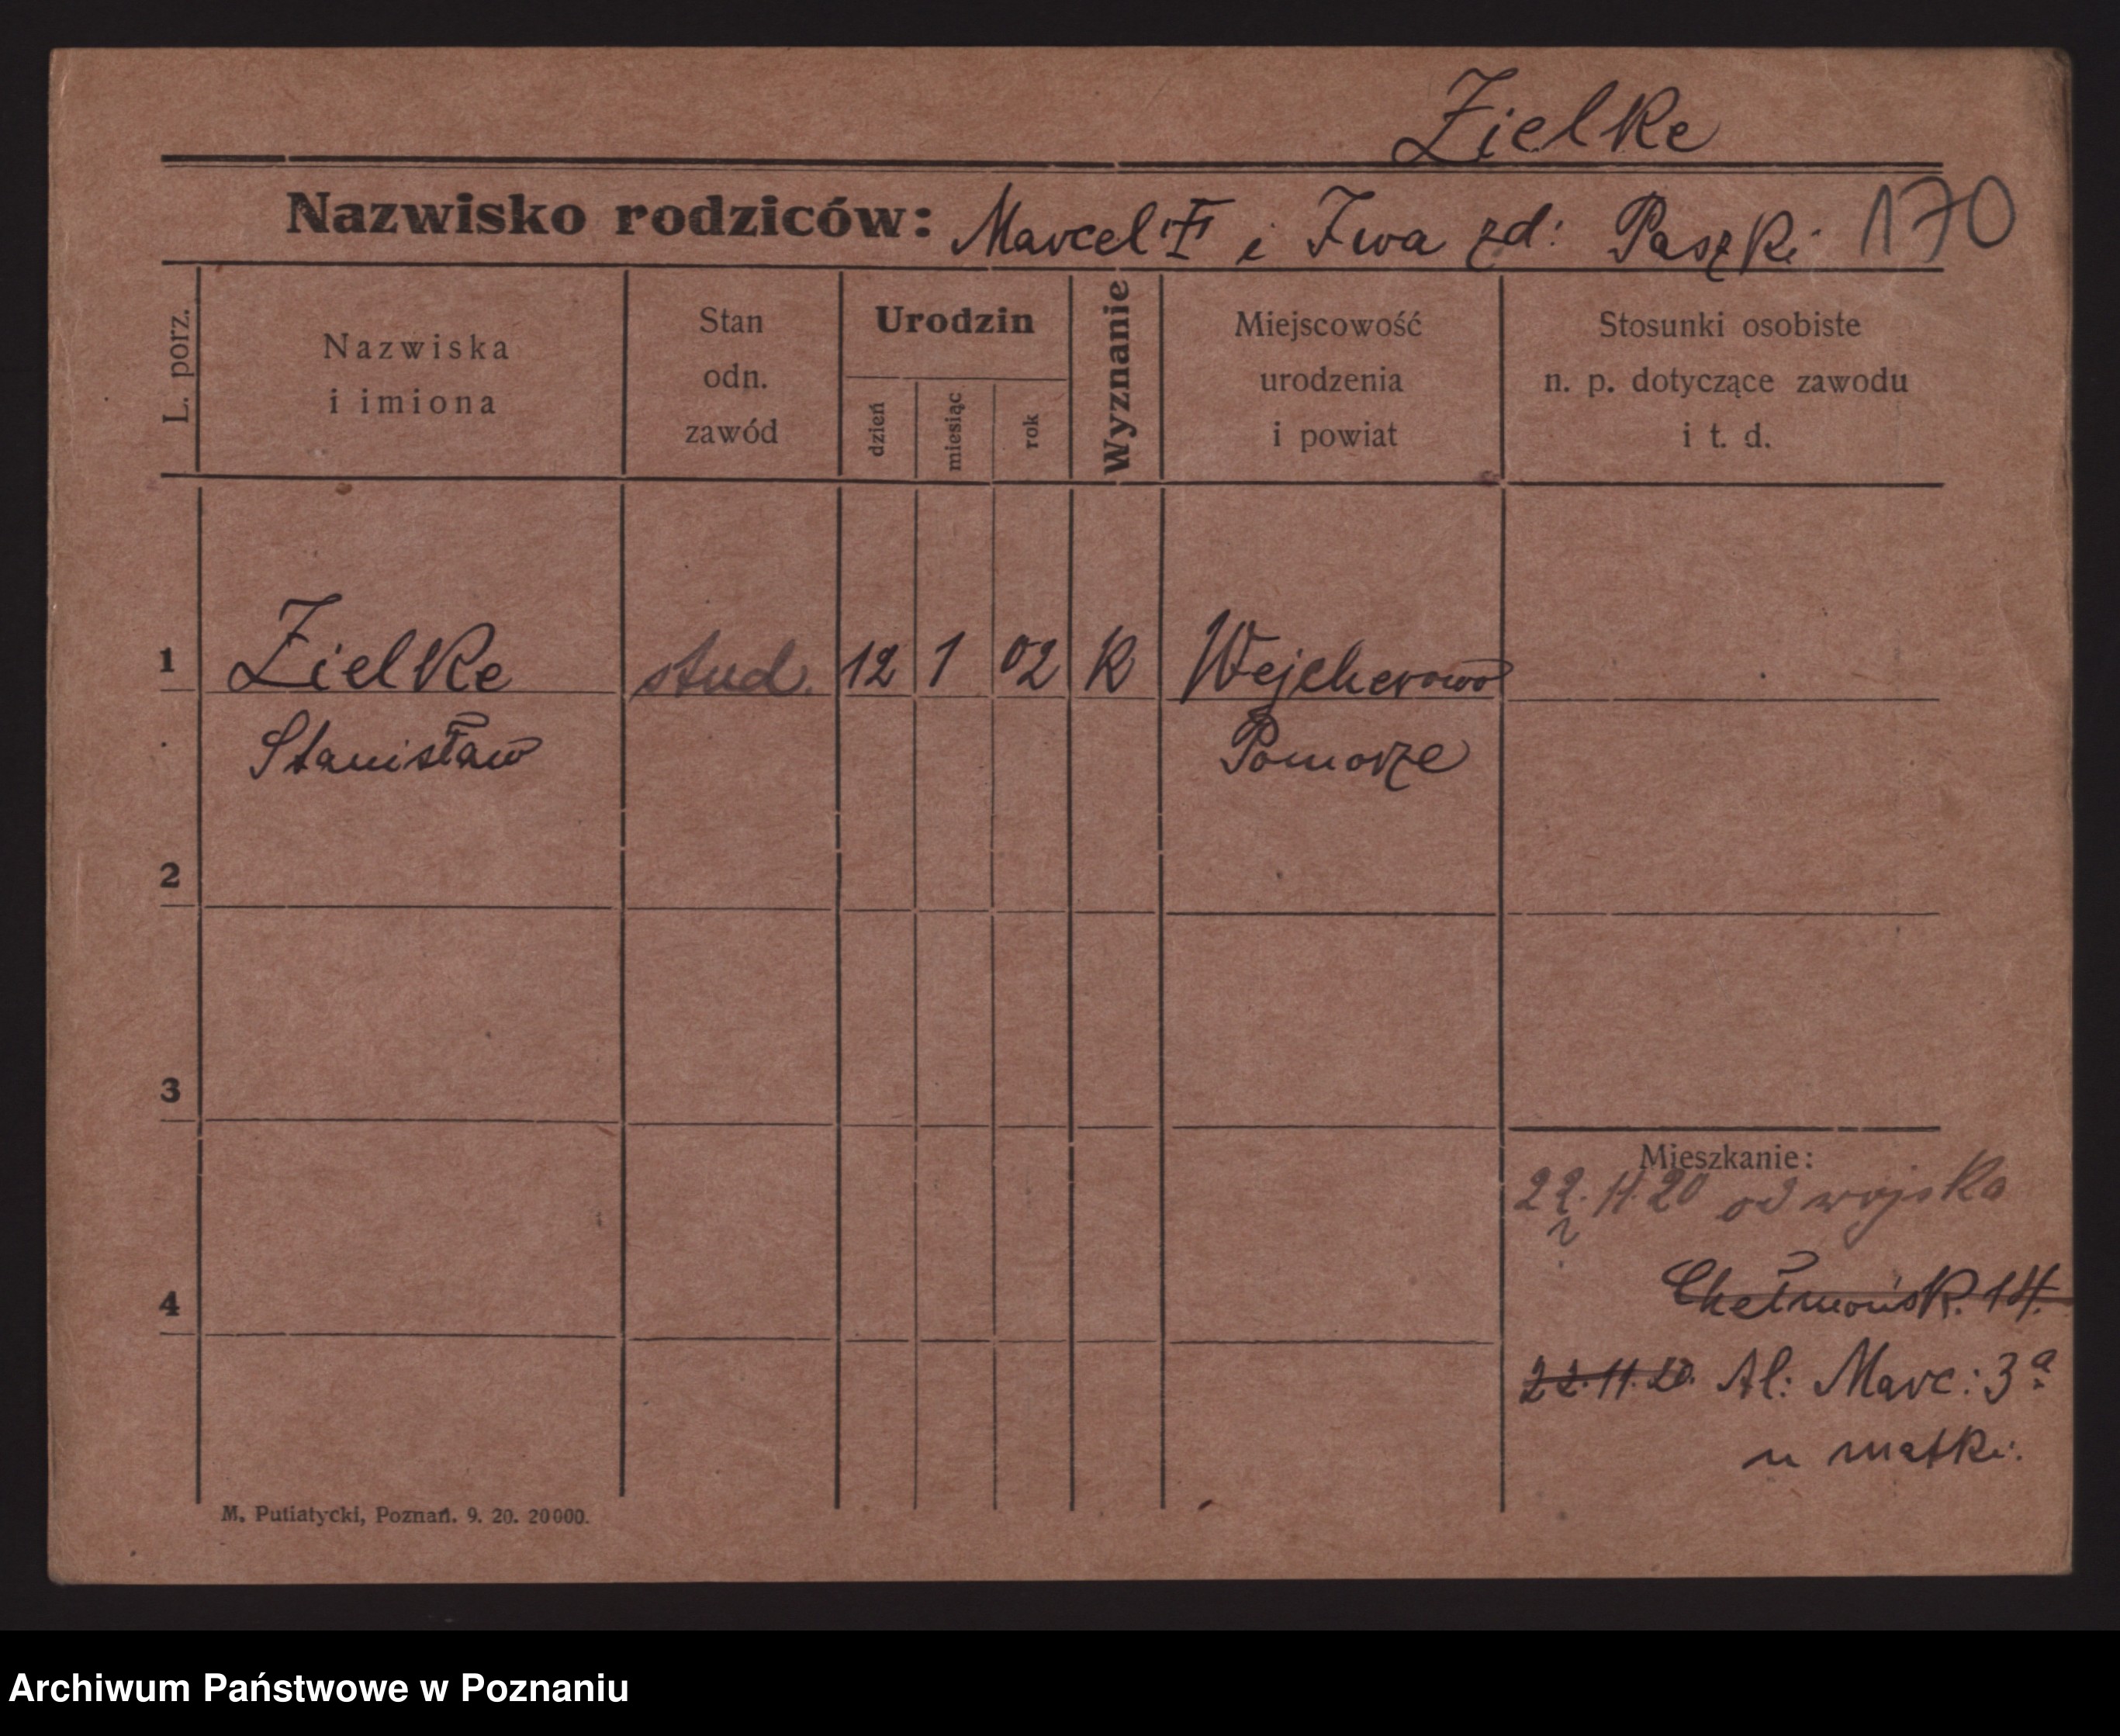 Zielke
Nazwisko rodziców: Marcel i Ewa zd: Paszki 170
L. porz.
Nazwiska
i imiona
Stan
odn.
zawód
Urodzin
dzień
miesiąc
rok
Wyznanie
Miejscowość
urodzenia
i powiat
Stosunki osobiste
n. p. dotyczące zawodu
i t. d.
1 Zielke stud. 12 1 02 K Wejcherowo
Stanisław Pomorze
2
3
Mieszkanie:
22.11.20 od wojska
4 Chełmońsk. 14.
22.11.20. Al: Marc: 3a
u matki.
M. Putiatycki, Poznań. 9. 20. 20000.
Archiwum Państwowe w Poznaniu